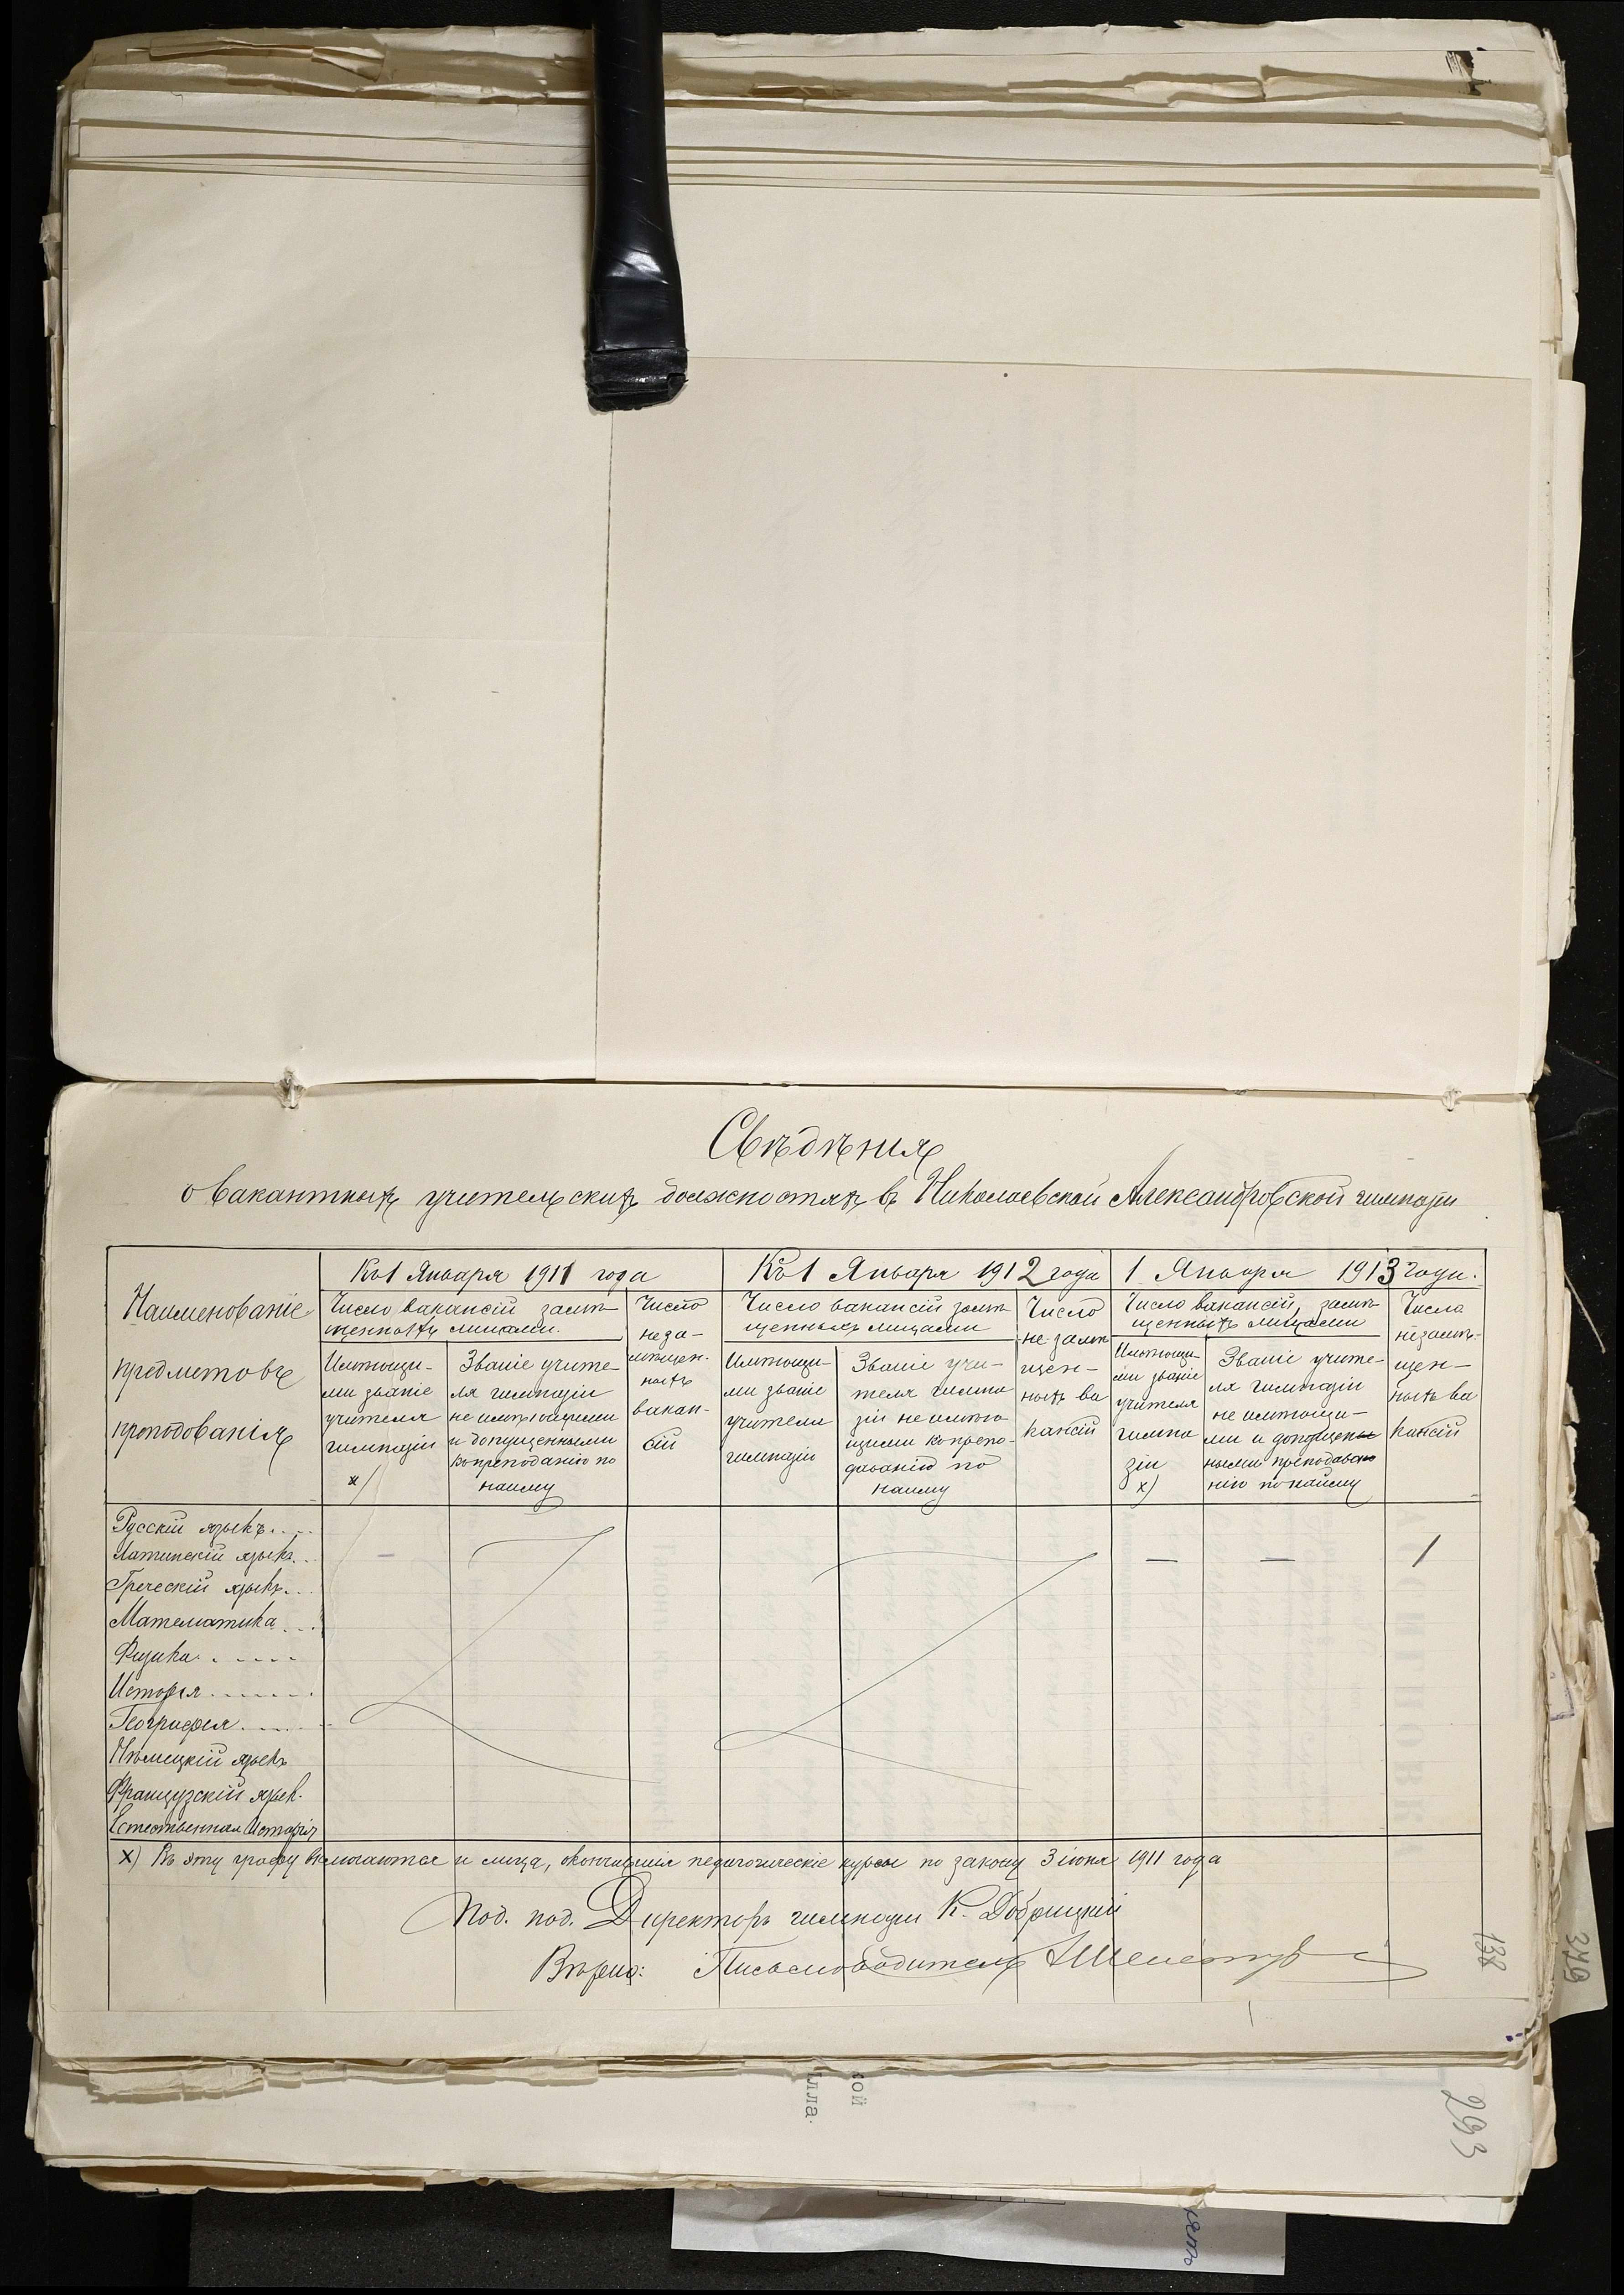 Свѣдѣния
о вакантныхъ учительскихъ должностяхъ въ Николаевской Александровской гимназіи
Наименованіе
предметовъ
преподованія
Къ 1 Января 1911 года
Число вакансій замѣ-
щенныхъ лицами.
Имѣющи-
ми званіе
учителя
гимназіи
x)
Званіе учите-
ля гимназіи
не имѣющими
и допущенными
къ преподанію по
найму
Число
неза-
мѣщен-
ныхъ
вакан-
сій
Къ 1 Января 1912 года
Число вакансій замѣ
щенныхъ лицами
Имѣющи-
ми званіе
учителя
гимназіи
Званіе учи-
теля гимна
зіи не имѣю
щими къ препо-
даванію по
найму
Число
не замѣ
щен-
ныхъ ва
кансій
1 Января 1913 года.
Число вакансій, замѣ-
щенныхъ лицами
Имѣющи-
ми званіе
учителя
гимна
зіи
x)
Званіе учите-
ля гимназіи
не имѣющи-
ми и допущен
ными преподава
нію по найму
Число
незамѣ-
щен-
ныхъ ва
кансій
Русскій языкъ....
Латинскій языкъ... — — — 1
Греческій языкъ...
Математика....
Физика......
Исторія.......
Географія......
Нѣмецкій языкъ
Французскій язык.
Естественная Исторія
x) Въ эту графу включаются и лица, окончившія педагогическіе курсы по закону 3 іюня 1911 года
Под. под. Директоръ гимназіи К. Добрицкій
Вѣрно: Письмоводитель
138
349
293
кой
лла.